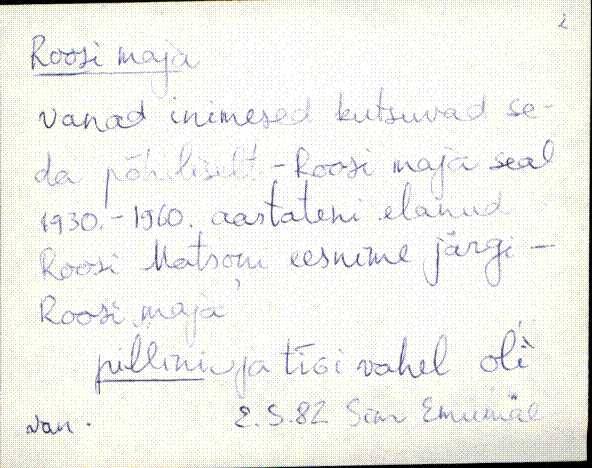 Roosi maja
vanad inimesed kutsuvad se-
da põhiliselt - Roosi maja seal
1930.-1960. aastateni elanud
Roosi Matsoni eesnime järgi -
Roosi maja
ja tiigi vahel oli
van.
E.S.82